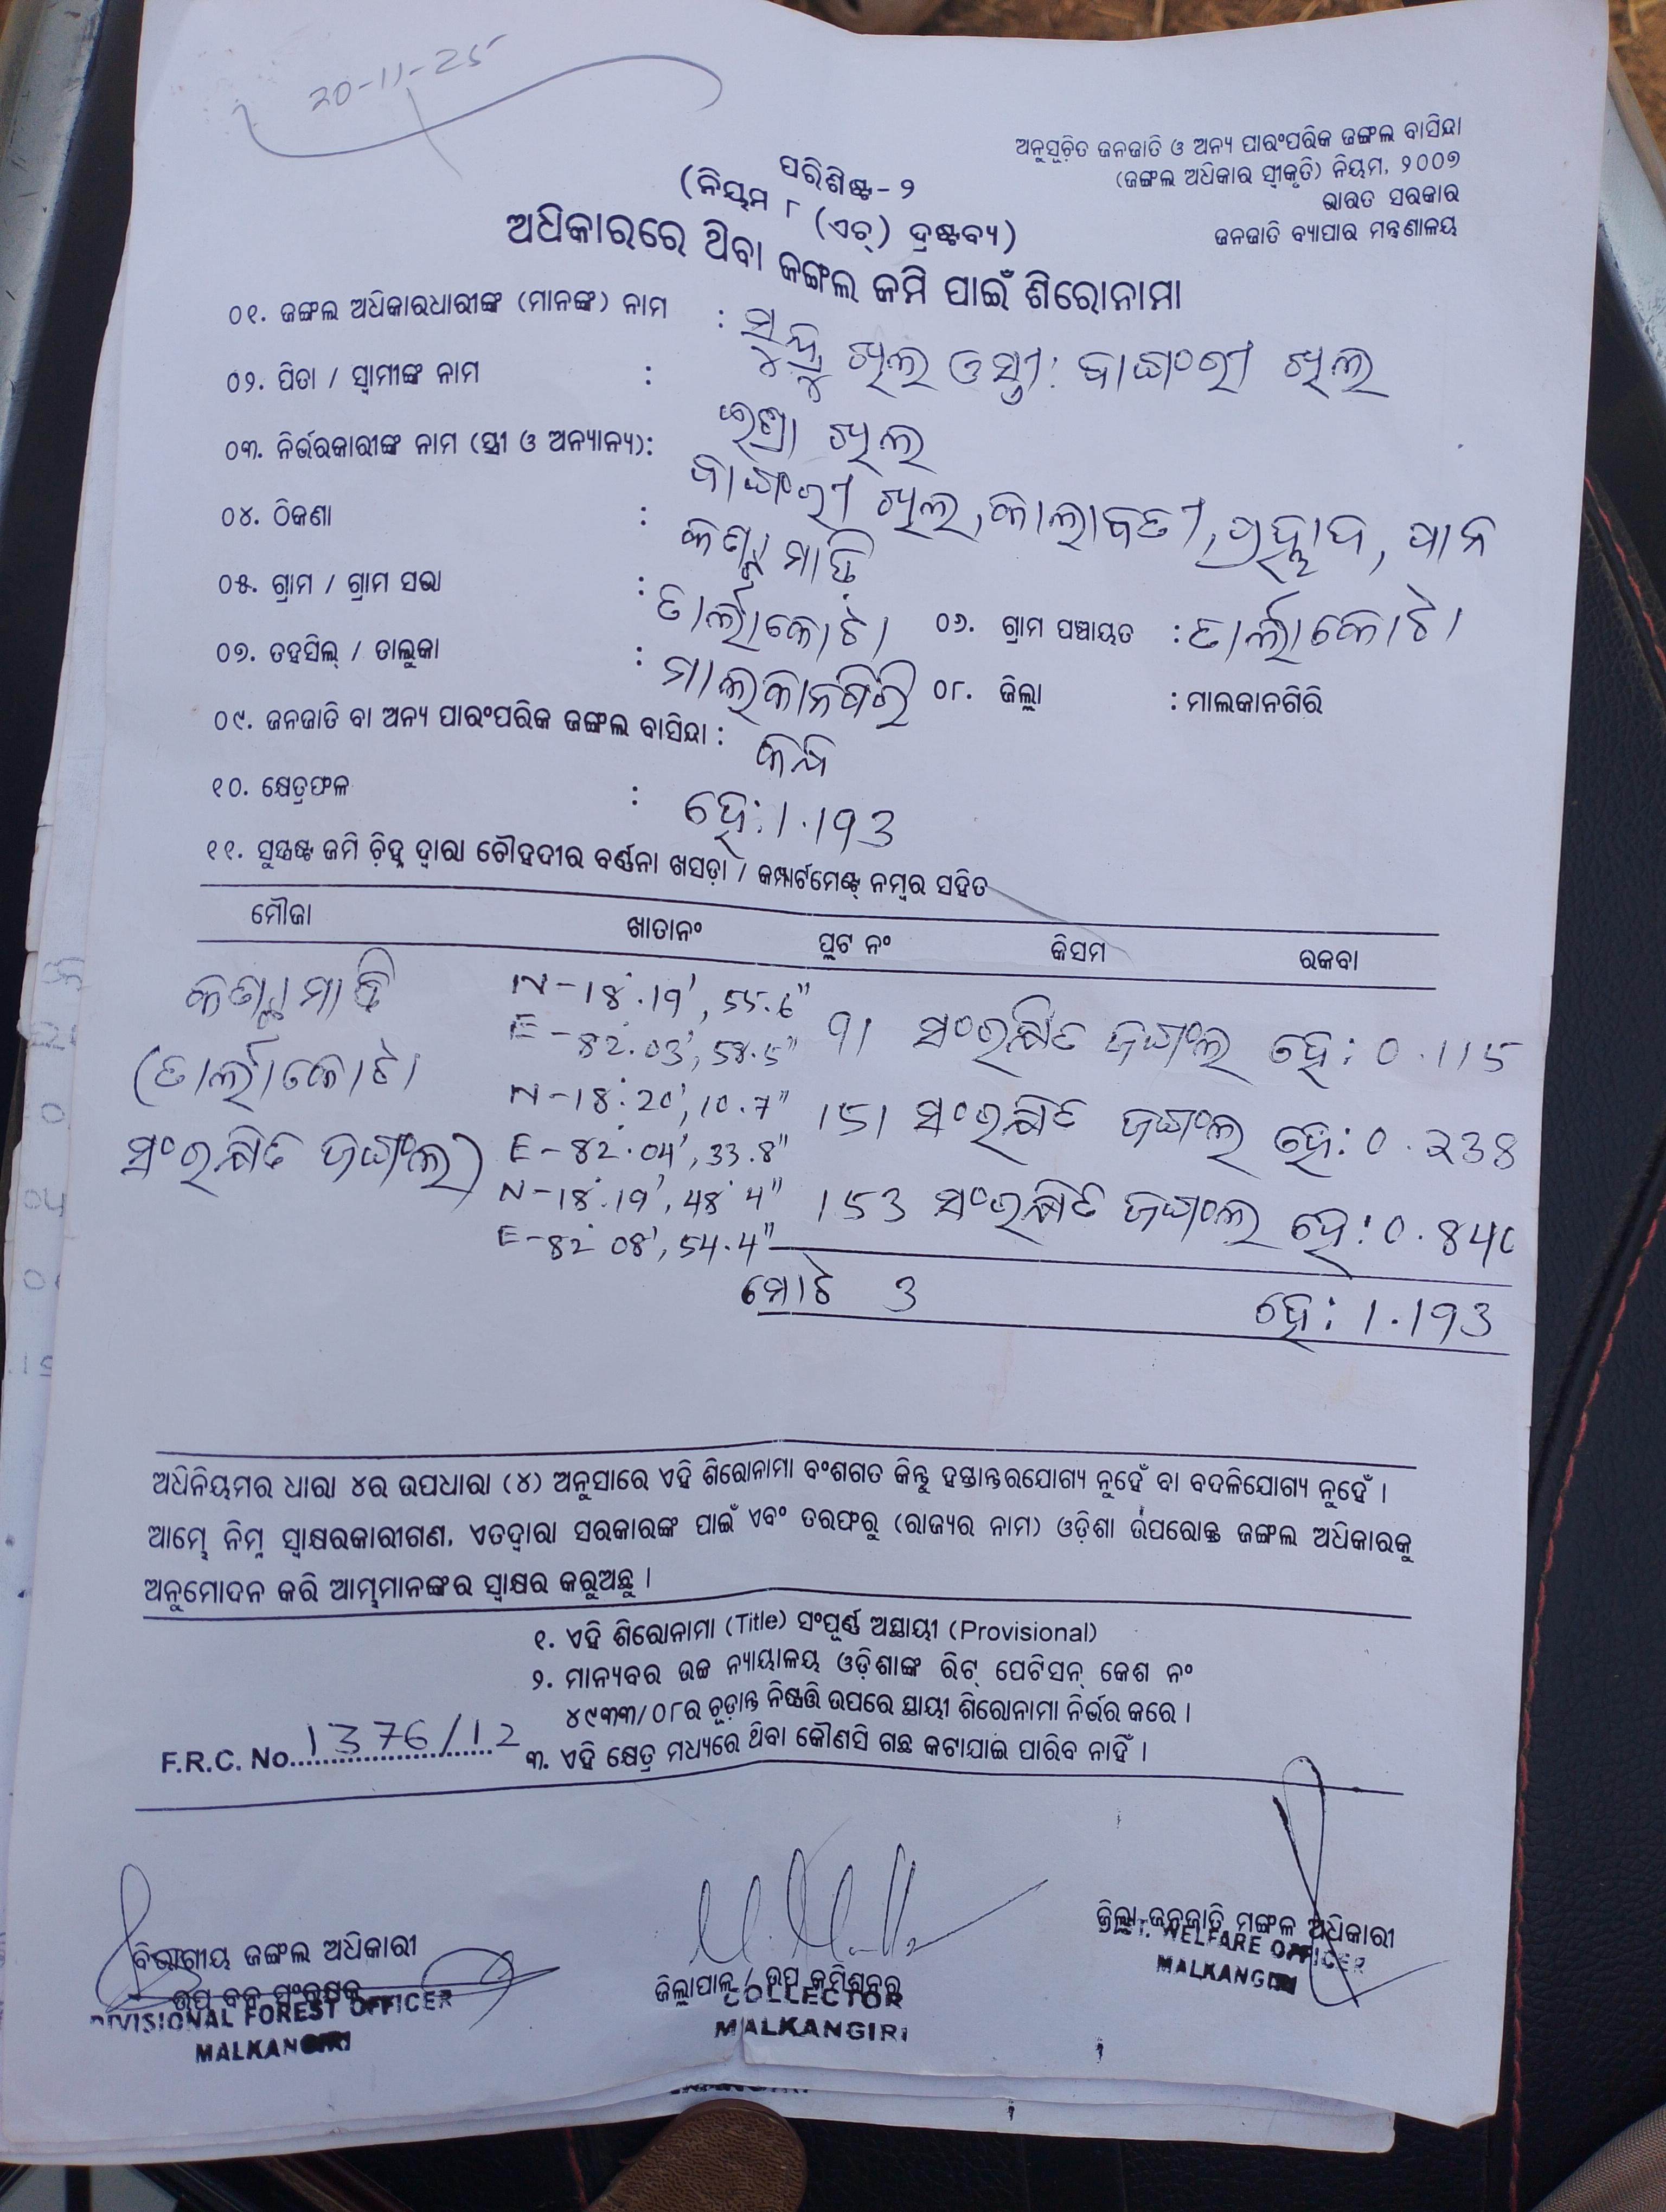 20-11-25
ଅନୁସୂଚିତ ଜନଜାତି ଓ ଅନ୍ୟ ପାରଂପରିକ ଜଙ୍ଗଲ ବାସିନ୍ଦା
(ଜଙ୍ଗଲ ଅଧିକାର ସ୍ୱୀକୃତି) ନିୟମ, ୨୦୦୭
ଭାରତ ସରକାର
ଜନଜାତି ବ୍ୟାପାର ମନ୍ତ୍ରଣାଳୟ
ପରିଶିଷ୍ଟ-୨
(ନିୟମ ୮ (ଏଚ୍) ଦ୍ରଷ୍ଟବ୍ୟ)
ଅଧିକାରରେ ଥିବା ଜଙ୍ଗଲ ଜମି ପାଇଁ ଶିରୋନାମା
୦୧. ଜଙ୍ଗଲ ଅଧିକାରଧାରୀଙ୍କ (ମାନଙ୍କ) ନାମ :
୦୨. ପିତା / ସ୍ୱାମୀଙ୍କ ନାମ :
୦୩. ନିର୍ଭରକାରୀଙ୍କ ନାମ (ସ୍ତ୍ରୀ ଓ ଅନ୍ୟାନ୍ୟ):
୦୪. ଠିକଣା :
୦୫. ଗ୍ରାମ / ଗ୍ରାମ ସଭା : ତାର୍ଲାକୋଟା ୦୬. ଗ୍ରାମ ପଞ୍ଚାୟତ : ତାର୍ଲାକୋଟା
୦୭. ତହସିଲ୍ / ତାଲୁକା : ମାଲକାନଗିରି ୦୮. ଜିଲ୍ଲା : ମାଲକାନଗିରି
୦୯. ଜନଜାତି ବା ଅନ୍ୟ ପାରଂପରିକ ଜଙ୍ଗଲ ବାସିନ୍ଦା :
୧୦. କ୍ଷେତ୍ରଫଳ : ହେ: 1.193
୧୧. ସୁସ୍ପଷ୍ଟ ଜମି ଚିହ୍ନ ଦ୍ୱାରା ଚୌହଦୀର ବର୍ଣ୍ଣନା ଖସଡ଼ା / କମ୍ପାର୍ଟମେଣ୍ଟ୍ ନମ୍ବର ସହିତ
ମୌଜା ଖାତାନଂ ପ୍ଲଟ ନଂ କିସମ ରକବା
N-18°.19', 55.6"
E-82°.03', 58.5" 91 ସଂରକ୍ଷିତ ଜଙ୍ଗଲ ହେ: 0.115
(ତାର୍ଲାକୋଟା N-18°.20', 10.7"
E-82°.04', 33.8" 151 ସଂରକ୍ଷିତ ଜଙ୍ଗଲ ହେ: 0.238
ସଂରକ୍ଷିତ ଜଙ୍ଗଲ) N-18°.19', 48.4"
E-82° 08', 54.4" 153 ସଂରକ୍ଷିତ ଜଙ୍ଗଲ ହେ: 0.840
ମୋଟ 3 ହେ: 1.193
ଅଧିନିୟମର ଧାରା ୪ର ଉପଧାରା (୪) ଅନୁସାରେ ଏହି ଶିରୋନାମା ବଂଶଗତ କିନ୍ତୁ ହସ୍ତାନ୍ତରଯୋଗ୍ୟ ନୁହେଁ ବା ବଦଳିଯୋଗ୍ୟ ନୁହେଁ ।
ଆମ୍ଭେ ନିମ୍ନ ସ୍ୱାକ୍ଷରକାରୀଗଣ, ଏତଦ୍ୱାରା ସରକାରଙ୍କ ପାଇଁ ଏବଂ ତରଫରୁ (ରାଜ୍ୟର ନାମ) ଓଡ଼ିଶା ଉପରୋକ୍ତ ଜଙ୍ଗଲ ଅଧିକାରକୁ
ଅନୁମୋଦନ କରି ଆମ୍ଭମାନଙ୍କର ସ୍ୱାକ୍ଷର କରୁଅଛୁ ।
୧. ଏହି ଶିରୋନାମା (Title) ସଂପୂର୍ଣ୍ଣ ଅସ୍ଥାୟୀ (Provisional)
୨. ମାନ୍ୟବର ଉଚ୍ଚ ନ୍ୟାୟାଳୟ ଓଡ଼ିଶାଙ୍କ ରିଟ୍ ପେଟିସନ୍ କେଶ ନଂ
୪୯୩୩/୦୮ର ଚୂଡ଼ାନ୍ତ ନିଷ୍ପତ୍ତି ଉପରେ ସ୍ଥାୟୀ ଶିରୋନାମା ନିର୍ଭର କରେ ।
F.R.C. No. 1376/12
୩. ଏହି କ୍ଷେତ୍ର ମଧ୍ୟରେ ଥିବା କୌଣସି ଗଛ କଟାଯାଇ ପାରିବ ନାହିଁ ।
ବିଭାଗୀୟ ଜଙ୍ଗଲ ଅଧିକାରୀ
ଉପ ବନ ସଂରକ୍ଷକ
DIVISIONAL FOREST OFFICER
MALKANGIRI
ଜିଲ୍ଲାପାଳ / ଉପ କମିଶନର
COLLECTOR
MALKANGIRI
ଜିଲ୍ଲା ଜନଜାତି ମଙ୍ଗଳ ଅଧିକାରୀ
WELFARE OFFICER
MALKANGIRI